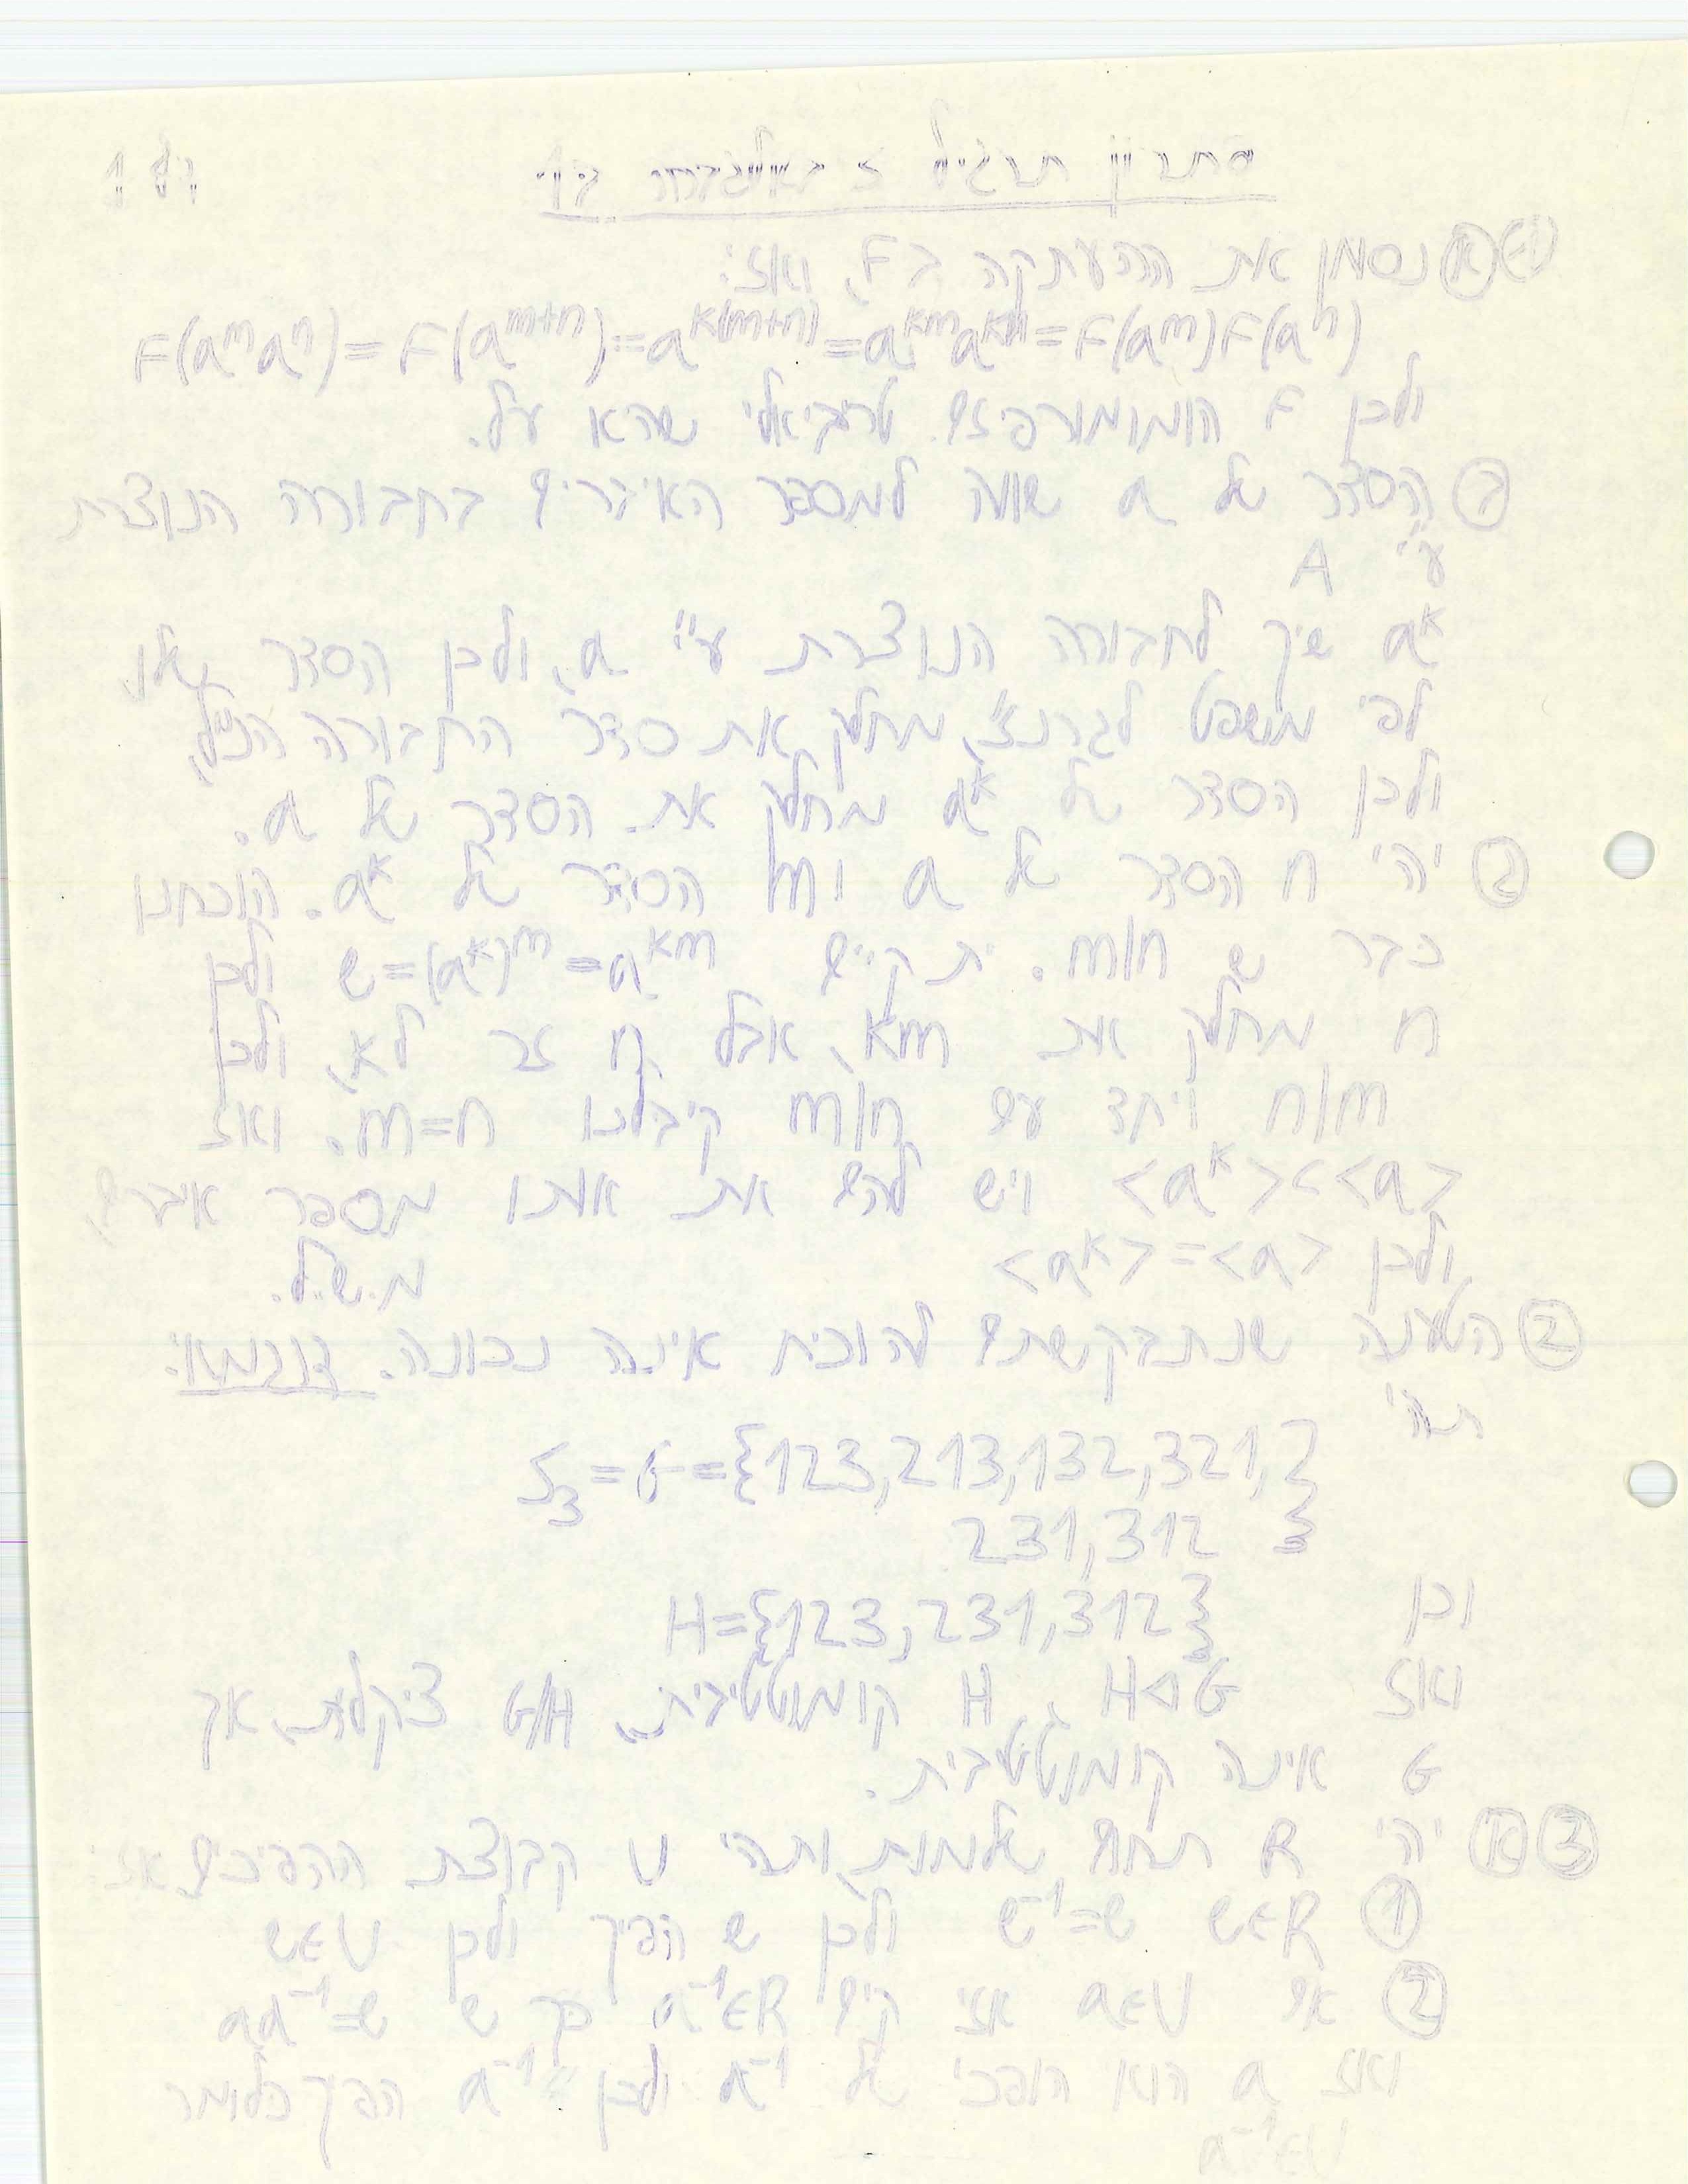 פתרון תרגיל 5 באלגברה ב1 דף 1
① א נסמן את ההעתקה ב F, ואז:
F(aᵐaⁿ)=F(aᵐ⁺ⁿ)=aᵏ⁽ᵐ⁺ⁿ⁾=aᵏᵐaᵏⁿ=F(aᵐ)F(aⁿ)
ולכן F הומומורפיזם. טריביאלי שהיא על.
ב הסדר של a שווה למספר האיברים בחבורה הנוצרת
ע"י A
aᵏ שיך לחבורה הנוצרת ע"י a, ולכן הסדר שלו,
לפי משפט לגרנז', מחלק את סדר החבורה הנ"ל,
ולכן הסדר של aᵏ מחלק את הסדר של a.
ג יהי n הסדר של a ו m הסדר של aᵏ. הוכחנו
כבר ש m|n. יתקיים e=(aᵏ)ᵐ=aᵏᵐ ולכן
n מחלק את km, אבל n זר לk, ולכן
n|m ויחד עם m|n קיבלנו m=n. ואז
<aᵏ><<a> ויש להם את אותו מספר איברים,
ולכן <aᵏ>=<a> מ.ש.ל.
② הטענה שנתבקשתם להוכיח אינה נכונה. דוגמא:
תהי
S₃=G={123,213,132,321,
231,312 }
וכן H={123,231,312}
ואז H◁G, H קומוטטיבית, G/H ציקלית, אך
G אינה קומוטטיבית.
③ א יהי R תחום שלמות, ותהי U קבוצת ההפיכים, אז:
① e∈R e⁻¹=e ולכן e הפיך ולכן e∈U
② אם a∈U אזי קיים a⁻¹∈R כך ש aa⁻¹=e
ואז a הוא הופכי של a⁻¹ ולכן a⁻¹ הפיך כלומר
a⁻¹∈U